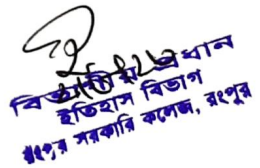 বিভাগীয় প্রধান
ইতিহাস বিভাগ
রংপুর সরকারি কলেজ, রংপুর